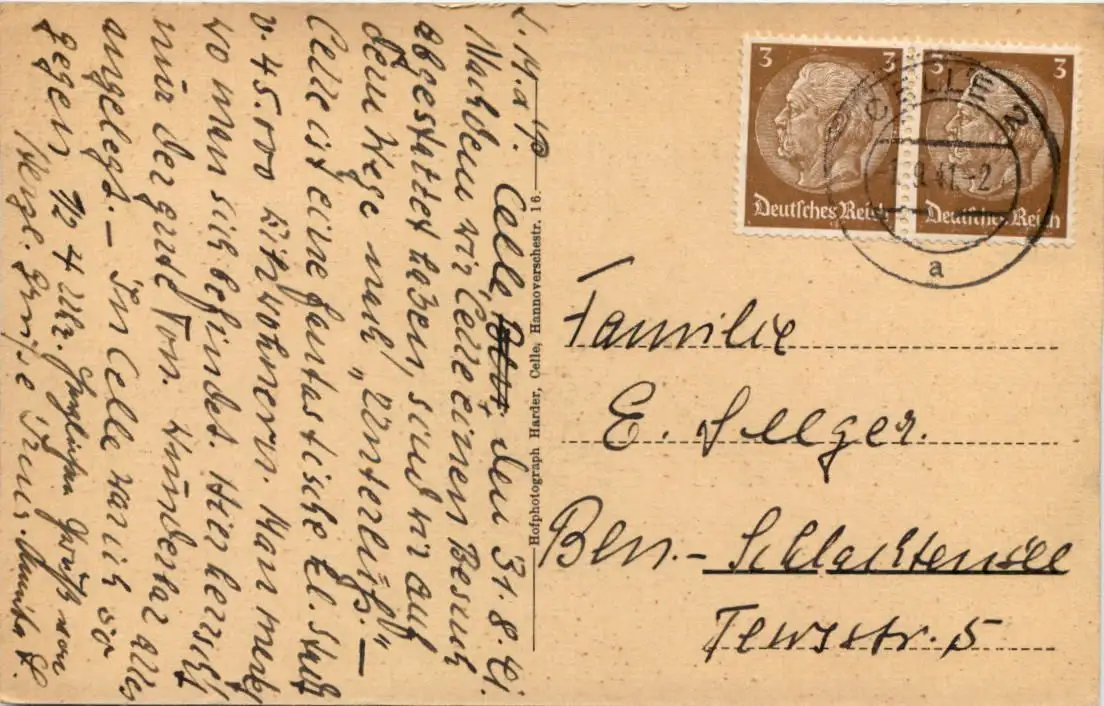 Celle, den 31.8.41.
Nachdem wir Celle einen Besuch
abgestattet haben, sind wir auf
dem Wege nach „Unterlüß“.—
Celle ist eine fantastische kl. Stadt
v. 45.000 Einwohnern. Man merkt
wo man sich befindet. Hier herrscht
nur der gute Ton. Wunderbar alles
angelegt.— In Celle war ich so
gegen 1/2 4 Uhr.
Herzl. Grüße
Hofphotograph Harder, Celle, Hannoverschestr. 16.
3 3 3 3
Deutsches Reich Deutsches Reich
CELLE 2
9.41.-2
a
Familie
E. Seeger.
Bln.- Schlachtensee
Tewsstr. 5